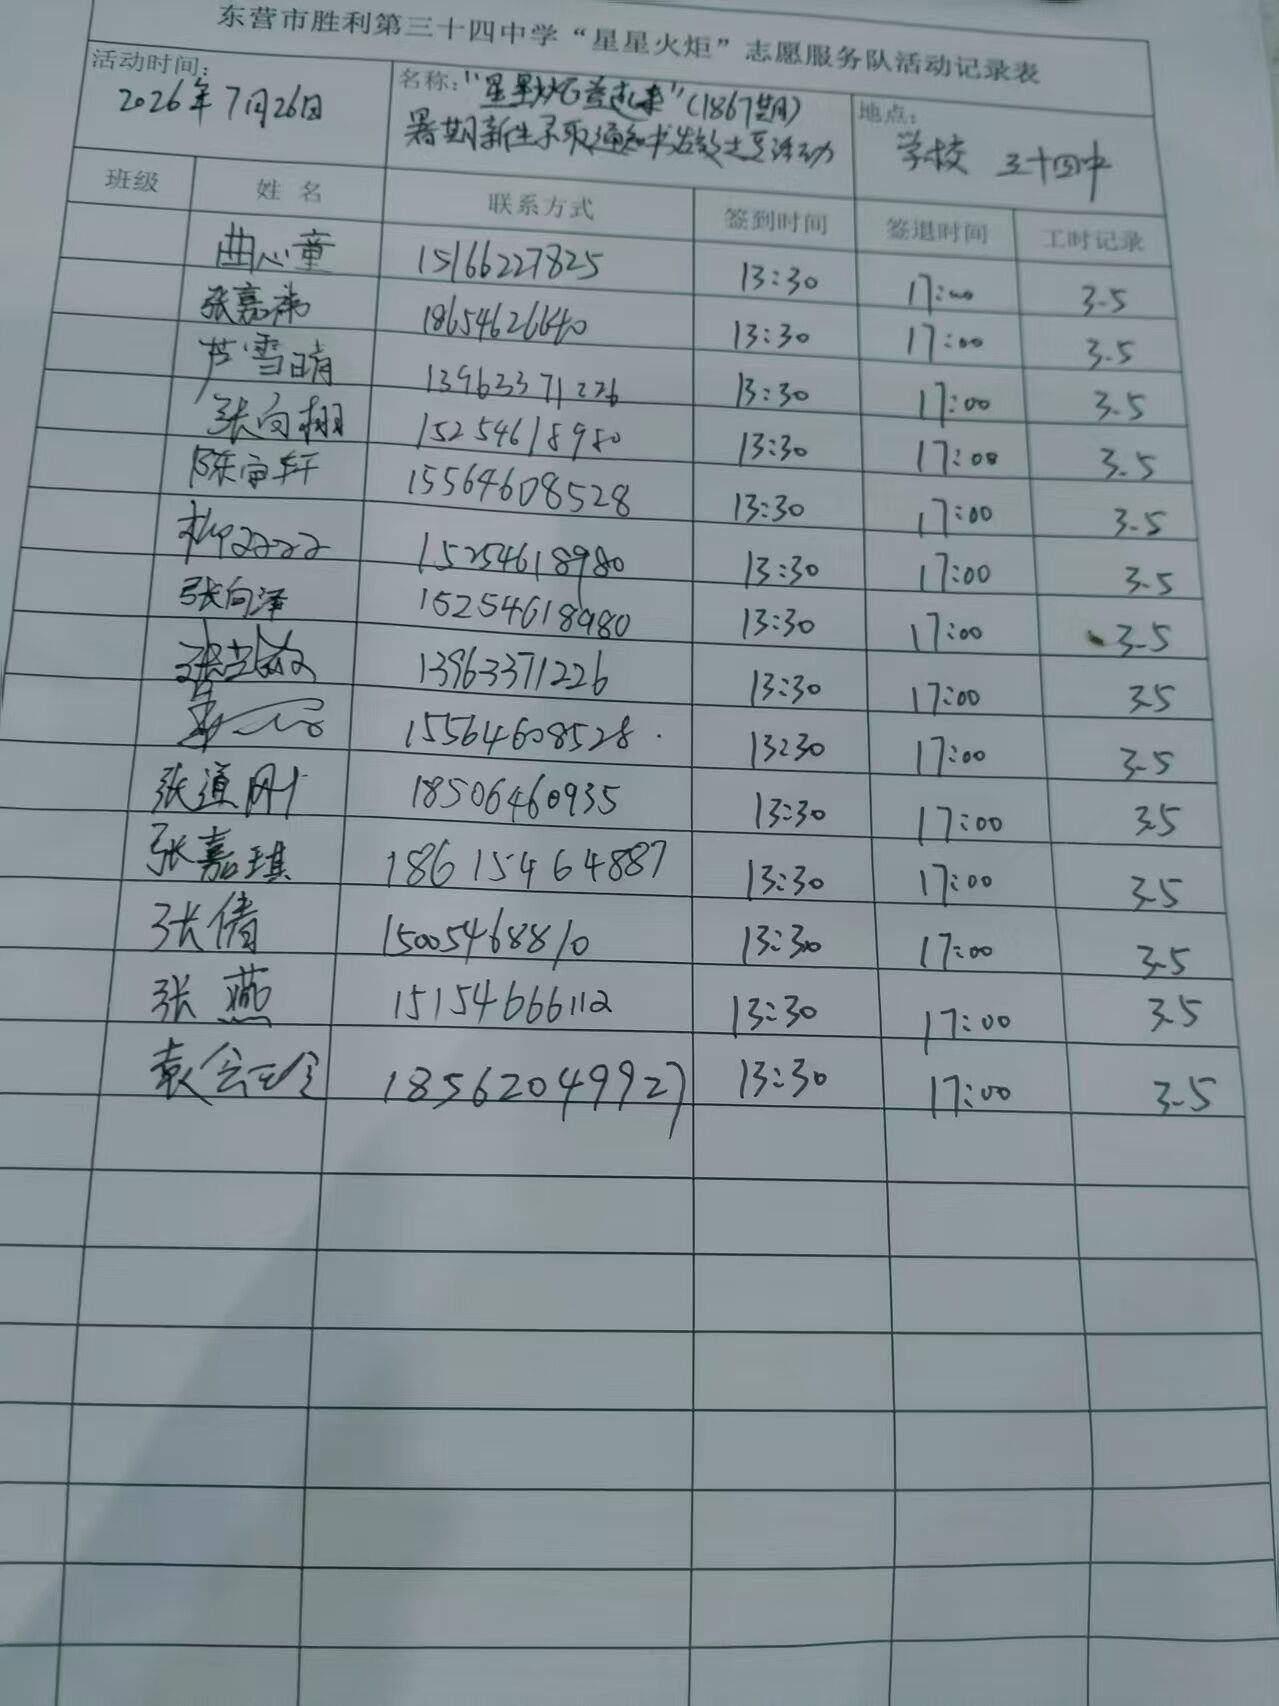 东营市胜利第三十四中学“星星火炬”志愿服务队活动记录表
活动时间： 名称：“星星火炬 (1867期) 地点：
2026年7月26日 暑期新生录取通知书发放 活动 学校 三十四中
班级 姓名 联系方式 签到时间 签退时间 工时记录
曲心童 15166227825 13:30 17:00 3.5
张嘉 18654626640 13:30 17:00 3.5
芦雪晴 13963371226 13:30 17:00 3.5
张向栩 15254618980 13:30 17:00 3.5
陈 轩 15564608528 13:30 17:00 3.5
15254618980 13:30 17:00 3.5
张向泽 15254618980 13:30 17:00 3.5
张 13963371226 13:30 17:00 3.5
15564608528 13:30 17:00 3.5
张道刚 18506460935 13:30 17:00 3.5
张嘉琪 18615464887 13:30 17:00 3.5
张倩 15005468810 13:30 17:00 3.5
张燕 15154666112 13:30 17:00 3.5
袁 18562049927 13:30 17:00 3.5